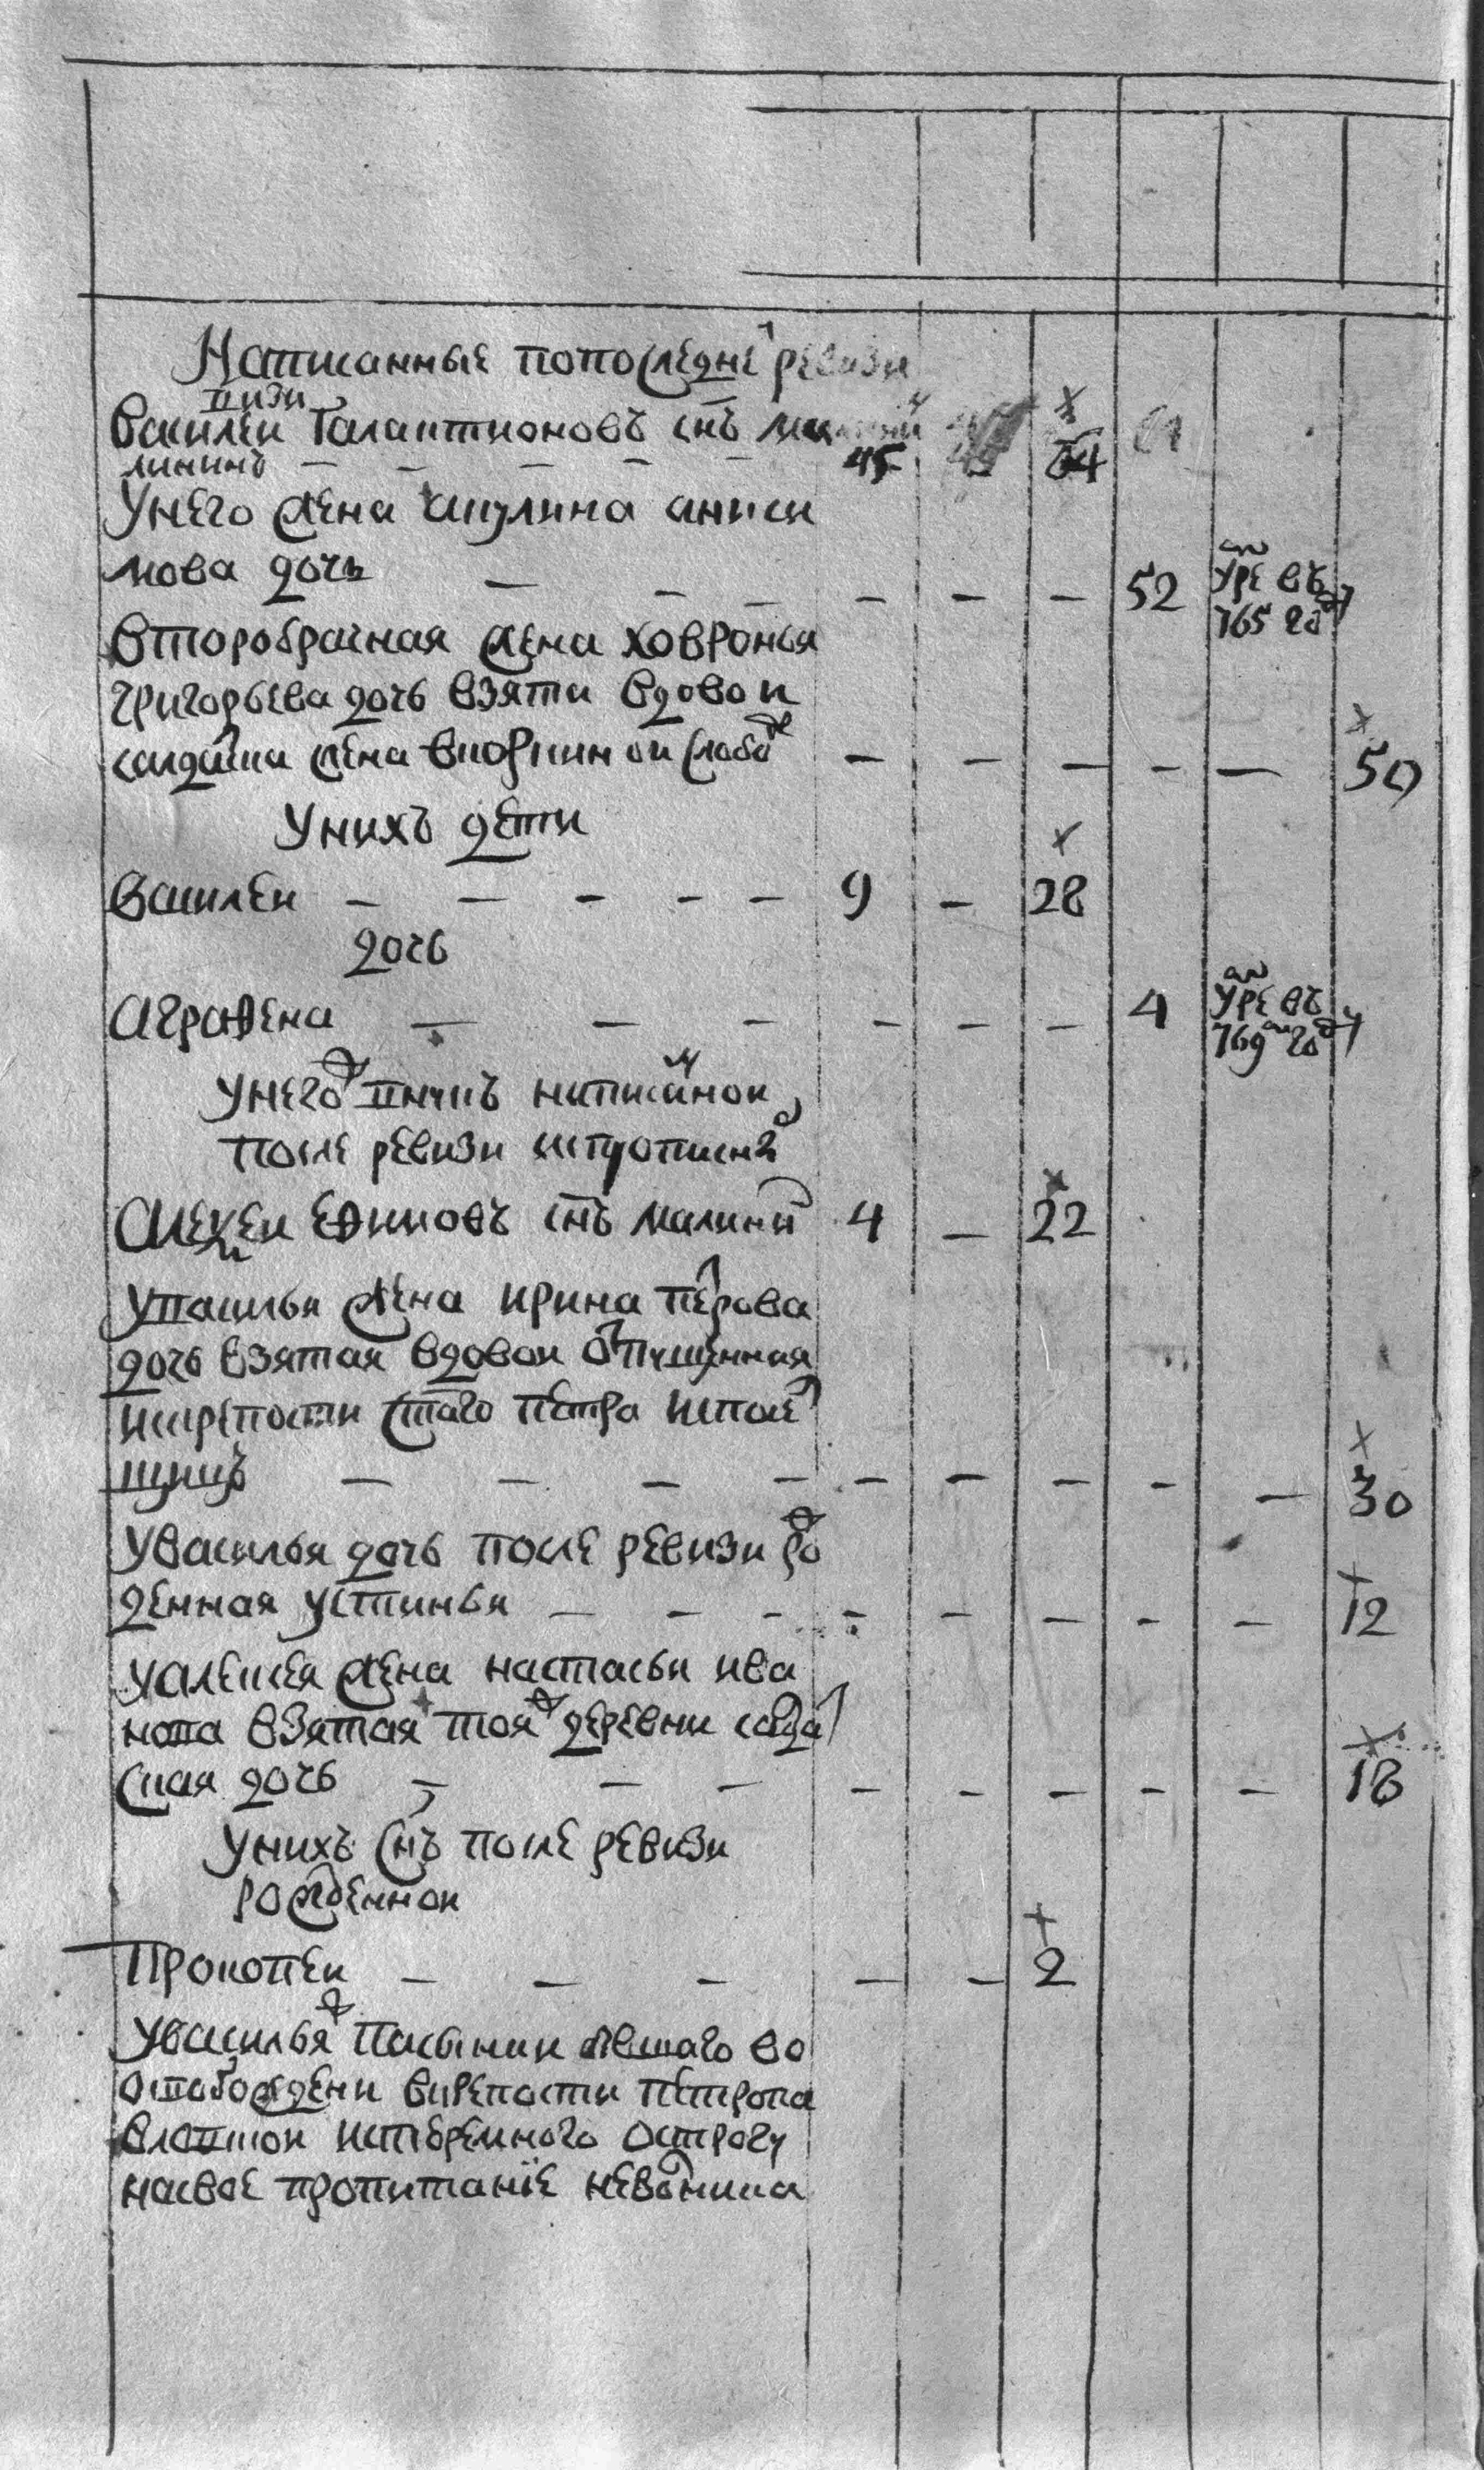 Написанные попоследнеи ревизи
Василеи Галантионовъ снъ
лининъ — — — — — 45 64
Унего жена акулина аниси
мова дочь — — — — — — 52 умре въ
765 году
Второбрачная жена ховронья
григорьева дочь взята вдовои
салдацкая жена
— — — — — 50
Унихъ дети
Василеи — — — — — 9 — 28
дочь
Аграфена — — — — — — 4 умре въ
769м году
Унегож написанои
после ревизи
Алексеи Ефимовъ снъ малинин 4 — 22
Увасилья жена ирина петрова
дочь взятая вдовои отпущенная
искрепости стаго петра испас
— — — — — — — — — 30
Увасилья дочь после ревизи рож
денная устинья — — — — — — — — 12
уалексея жена настасья ива
нова взятая тояж деревни салда
цкая дочь — — — — — — — — 18
Унихъ снъ после ревизи
рожденнои
Прокопеи — — — — — 2
Увасильяж пасынки бывшаго во
освобождени вкрепости петропа
вловскои острогу
насвое пропитание